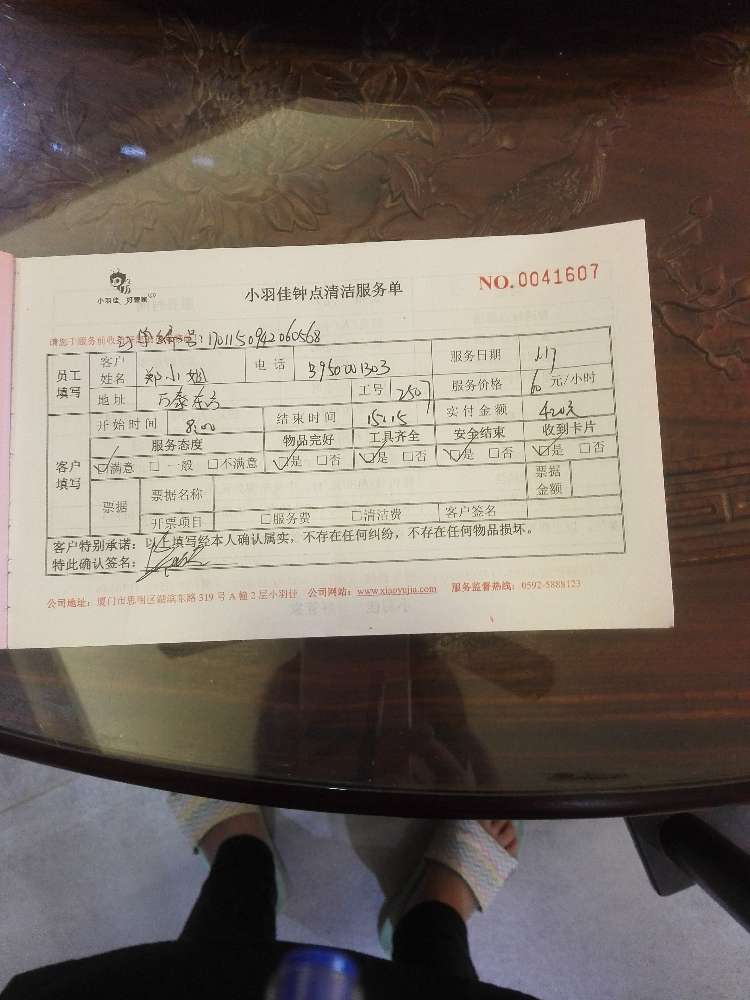 小羽佳 好管家
小羽佳钟点清洁服务单
NO.0041607
请您于服务前收
订单编号:1701150942060568
员工填写 客户姓名 郑小姐 电话 3950001303 服务日期 1.17
地址 工号 2507 服务价格 60 元/小时
开始时间 8:00 结束时间 15:15 实付金额 420元
客户填写 服务态度 物品完好 工具齐全 安全结束 收到卡片
☑满意 □一般 □不满意 ☑是 □否 ☑是 □否 ☑是 □否 ☑是 □否
票据 票据名称 票据金额
开票项目 □服务费 □清洁费 客户签名
客户特别承诺：以上填写经本人确认属实，不存在任何纠纷，不存在任何物品损坏。
特此确认签名：
公司地址：厦门市思明区湖滨东路 319 号 A 幢 2 层小羽佳 公司网站：www.xiaoyujia.com 服务监督热线：0592-5888123